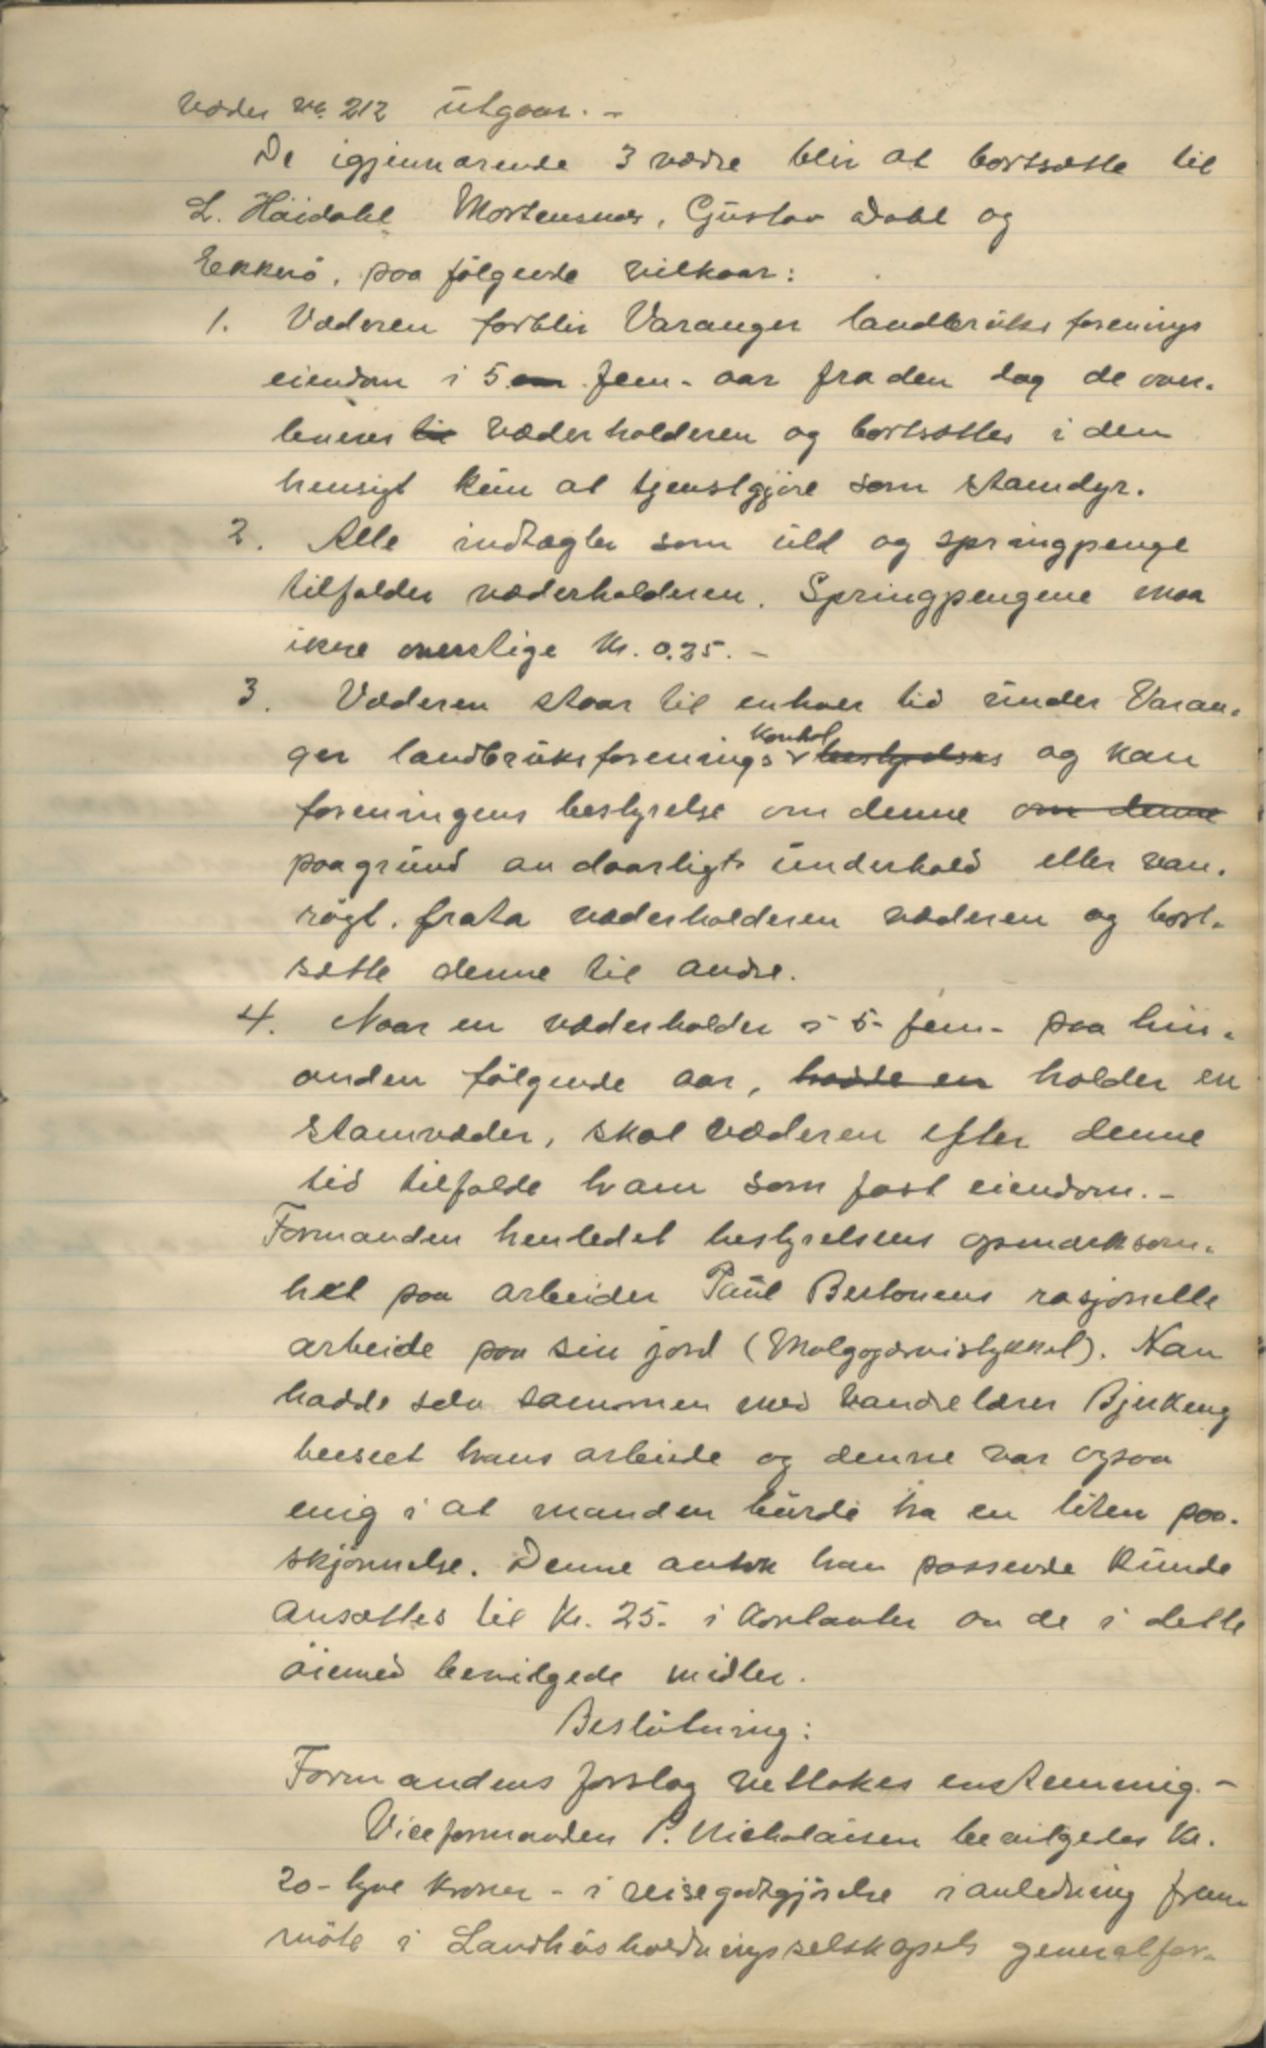 Væder no. 212 utgaar. -
De igjenværende 3 vædre blir at bortsætte til
L. Höidahl Mortensnes, Gustav Dahl og
Ekkerö, paa følgende vilkaar:
1. Væderen forblir Varanger landbruks forenings
eiendom i 5 fem - aar fra den dag de over-
leveres til væderholderen og bortsættes i den
hensigt kun at tjenstgjöre som stamdyr.
2. Alle indtægter som uld og springpenge
tilfalder væderholderen. Springpengene maa
ikke overstige kr. 0.25. -
3. Væderen staar til enhver tid under Varan-
ger landbruksforenings kontrol bestyrelses og kan
foreningens bestyrelse om denne om denne
paa grund av daarligt underhold eller van-
rögt, frata væderholderen væderen og bort-
sætte denne til andre.
4. Naar en væderholder i 5 - fem - paa hin-
anden følgende aar, hadde en holder en
stamvæder, skal væderen efter denne
tid tilfalde ham som fast eiendom. -
Formanden henledet bestyrelsens opmerksom-
het paa arbeider Paul Bertonens rasjonelle
arbeide paa sin jord (Molgogjærnistykket). Han
hadde selv sammen med vandrelærer Bjerkeng
beseet hans arbeide og denne var ogsaa
enig i at manden burde ha en liten paa-
skjönnelse. Denne antok han passende kunde
ansættes til kr. 25.- i kontanter av de i dette
öiemed bevilgede midler.
Beslutning:
Formandens forslag vedtokes enstemmig. -
Viceformanden P. Nicholaisen bevilgedes kr.
20 - tyve kroner - i reisegodtgjörelse i anledning frem-
möte i Landhusholdningsselskapets generalfor-